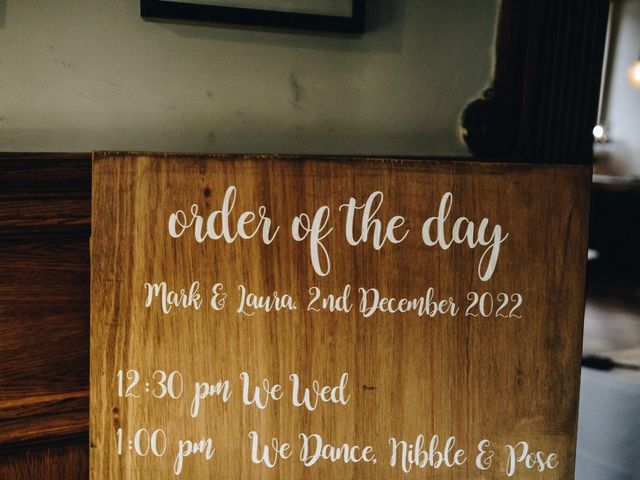 order of the day
Mark & Laura. 2nd December 2022
12:30 pm We Wed
1:00 pm We Dance, Nibble & Pose